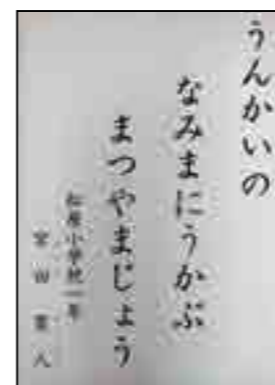 うんかいの
なみまにうかぶ
まつやまじょう
小学校一年
宮田
人